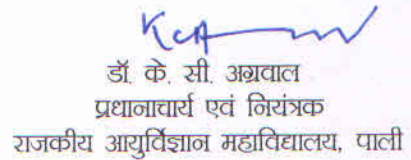 डॉ. के. सी. अग्रवाल
प्रधानाचार्य एवं नियंत्रक
राजकीय आयुर्विज्ञान महाविद्यालय, पाली